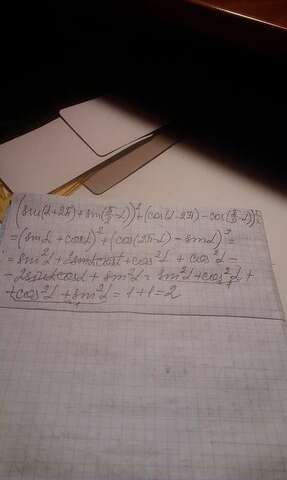 (sin(α+2π)+sin(π/2-α))²+(cos(α-2π)-cos(π/2-α))²
=(sinα+cosα)²+(cos(2π-α)-sinα)²=
=sin²α+2sinαcosα+cos²α+cos²α-
-2sinαcosα+sin²α=sin²α+cos²α+
+cos²α+sin²α=1+1=2